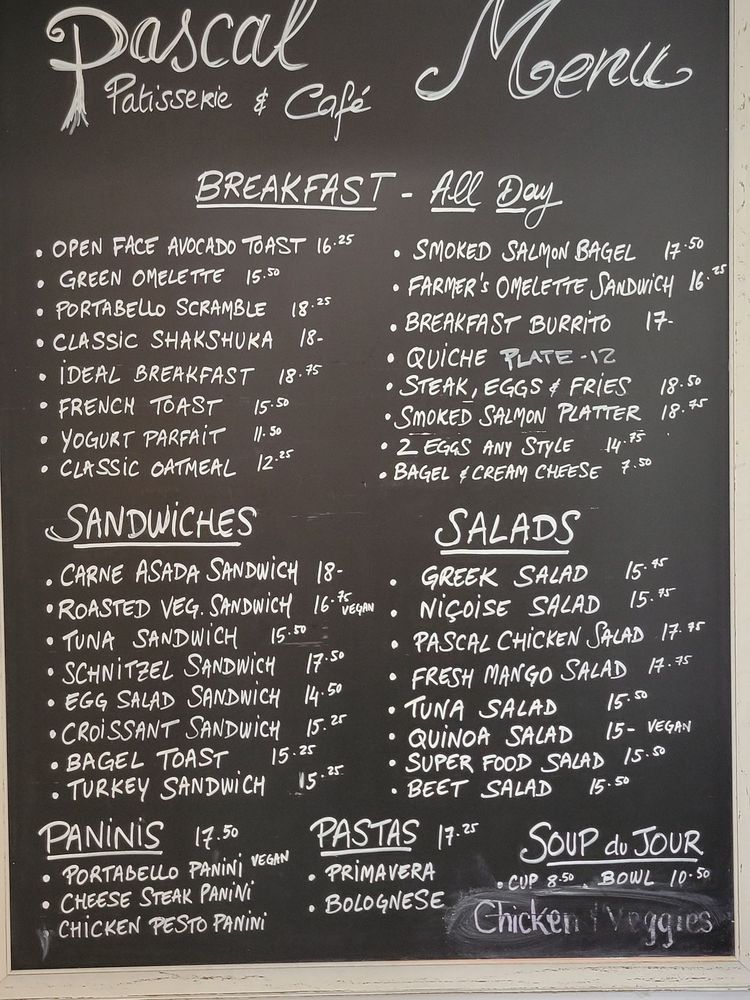 Pascal
Patisserie & Café
Menu
BREAKFAST - All Day
• OPEN FACE AVOCADO TOAST 16.25
• GREEN OMELETTE 15.50
• PORTABELLO SCRAMBLE 18.25
• CLASSIC SHAKSHUKA 18-
• IDEAL BREAKFAST 18.75
• FRENCH TOAST 15.50
• YOGURT PARFAIT 11.50
• CLASSIC OATMEAL 12.25
• SMOKED SALMON BAGEL 17.50
• FARMER'S OMELETTE SANDWICH 16.25
• BREAKFAST BURRITO 17-
• QUICHE PLATE -12
• STEAK, EGGS & FRIES 18.50
• SMOKED SALMON PLATTER 18.75
• 2 EGGS ANY STYLE 14.75
• BAGEL & CREAM CHEESE 7.50
SANDWICHES
• CARNE ASADA SANDWICH 18-
• ROASTED VEG. SANDWICH 16.75 VEGAN
• TUNA SANDWICH 15.50
• SCHNITZEL SANDWICH 17.50
• EGG SALAD SANDWICH 14.50
• CROISSANT SANDWICH 15.25
• BAGEL TOAST 15.25
• TURKEY SANDWICH 15.25
SALADS
• GREEK SALAD 15.75
• NIÇOISE SALAD 15.75
• PASCAL CHICKEN SALAD 17.75
• FRESH MANGO SALAD 17.75
• TUNA SALAD 15.50
• QUINOA SALAD 15- VEGAN
• SUPER FOOD SALAD 15.50
• BEET SALAD 15.50
PANINIS 17.50
• PORTABELLO PANINI VEGAN
• CHEESE STEAK PANINI
CHICKEN PESTO PANINI
PASTAS 17.25
• PRIMAVERA
• BOLOGNESE
SOUP du JOUR
• CUP 8.50 . BOWL 10.50
Chicken & Veggies